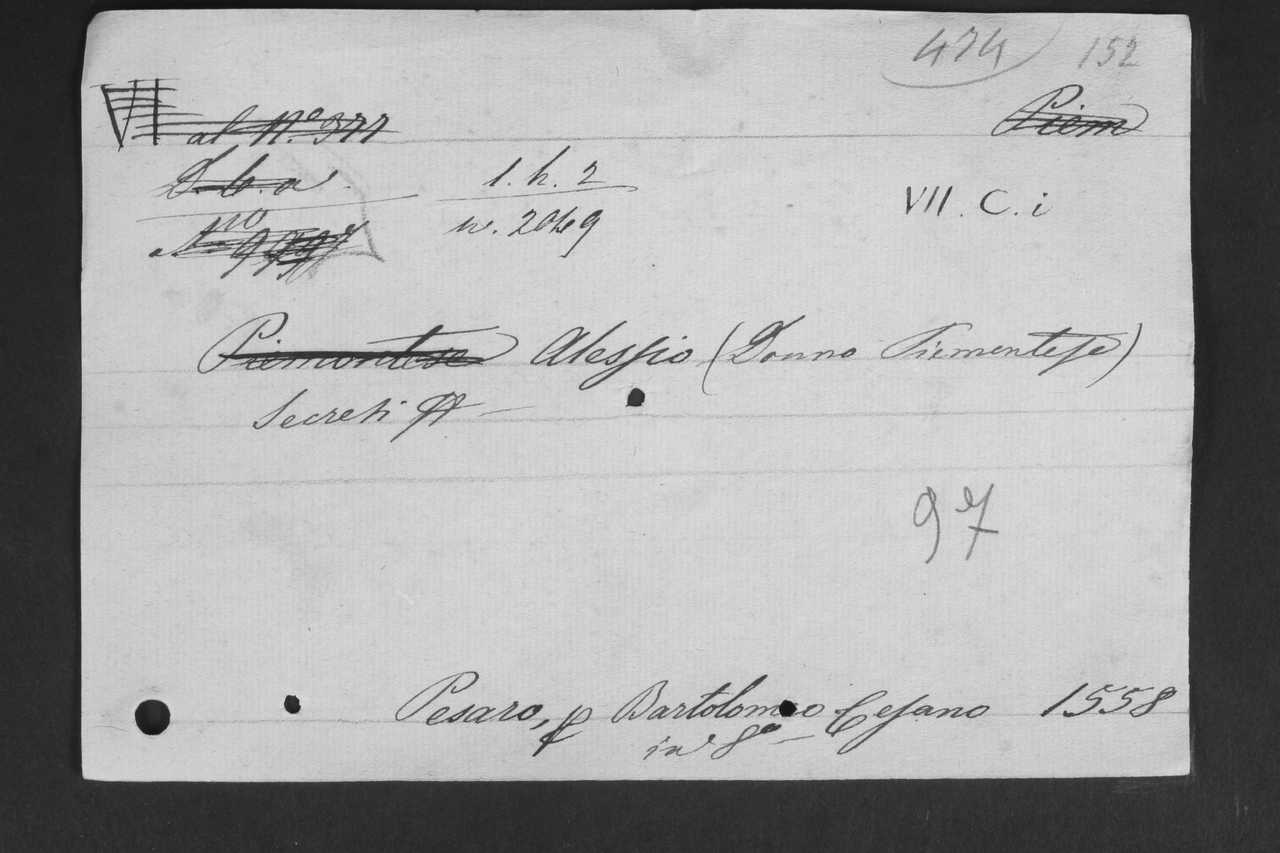 474 152
VII al N.º 377 Piem
D. b. a. 1. h. 2 VII. C. i
Nº n. 2049
Piemontese Alessio (Donno Piemontese)
Secreti
97
Pesaro, p Bartolomeo Cesano 1558
in 8º